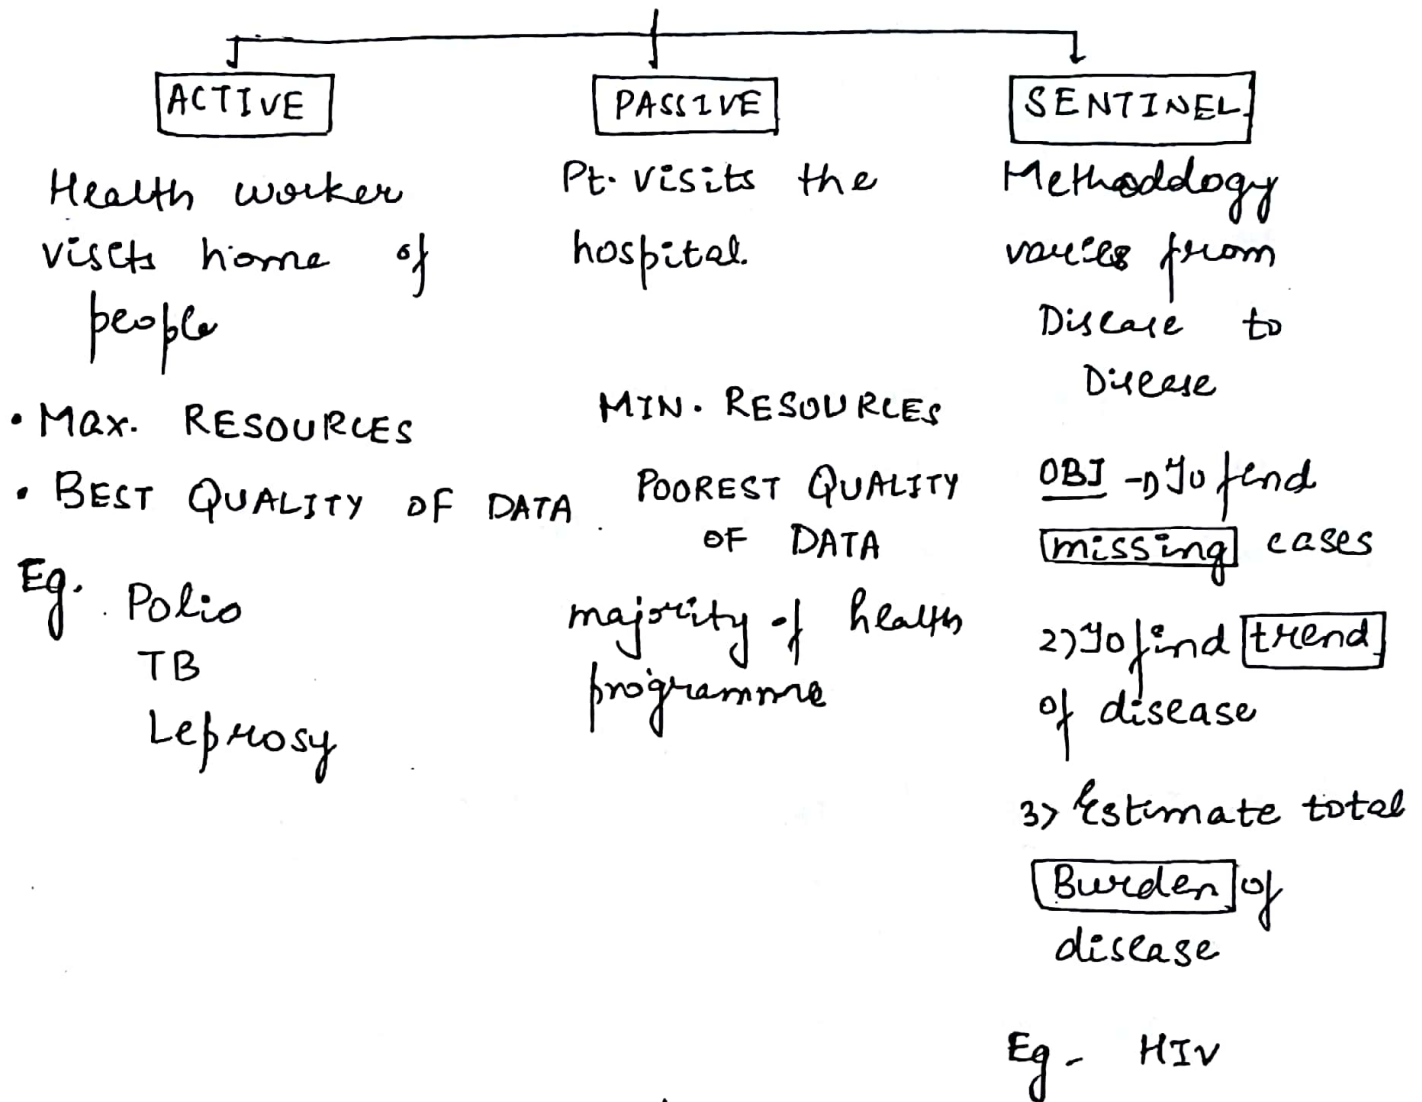 ACTIVE
Health worker
visits home of
people
• Max. RESOURCES
• BEST QUALITY OF DATA
Eg. Polio
TB
Leprosy
PASSIVE
Pt. visits the
hospital.
MIN. RESOURCES
POOREST QUALITY
OF DATA
majority of health
programme
SENTINEL
Methodology
varies from
Disease to
Disease
OBJ → To find
missing cases
2) To find trend
of disease
3) Estimate total
Burden of
disease
Eg - HIV